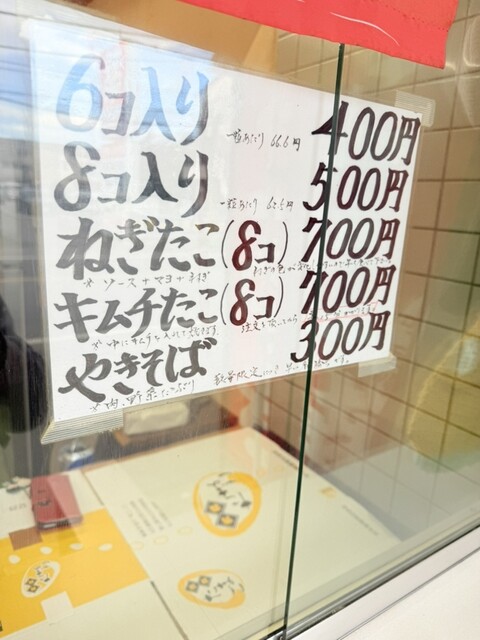 6コ入り 一粒あたり 66.6円 400円
8コ入り 一粒あたり 62.5円 500円
ねぎたこ(8コ) 700円
※ソース+マヨ+ネギ
キムチたこ(8コ) 700円
やきそば 300円
※肉、野菜たっぷり 数量限定